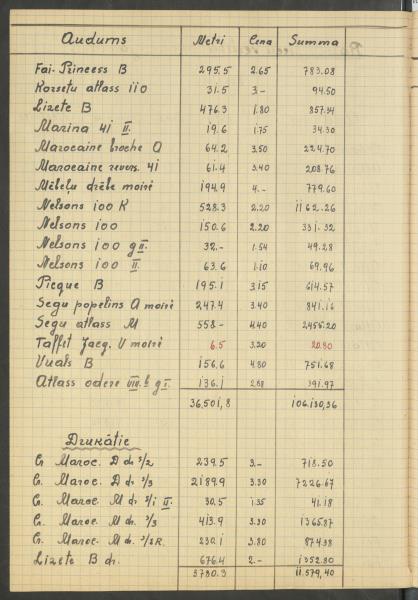 Audums Metri Cena Summa
Fai. Princess B 295.5 2.65 783.08
Korsetu atlass 110 31.5 3.- 94.50
Lizete B 476.3 1.80 857.34
Marina 41 II. 19.6 1.75 34.30
Marocaine broche A 64.2 3.50 224.70
Marocaine revers. 41 61.4 3.40 208.76
Mēbeļu drēbe moirē 194.9 4.- 779.60
Nelsons 100 K 528.3 2.20 1162.26
Nelsons 100 150.6 2.20 331.32
Nelsons 100 g II. 32.- 1.54 49.28
Nelsons 100 II. 63.6 1.10 69.96
Picque B 195.1 3.15 614.57
Segu popelins A moirē 247.4 3.40 841.16
Segu atlass M 558.- 4.40 2455.20
Taffet Jacq. V moirē 6.5 3.20 20.80
Vuals B 156.6 4.80 751.68
Atlass odere VIII. b g I. 136.1 2.88 391.97
36,501,8 106.130,36
Drukātie
Cr. Maroc. D dr. 5/2 239.5 3.- 718.50
Cr. Maroc. D dr. 5/3 2189.9 3.30 7226.67
Cr. Maroc. M dr. 5/1 II. 30.5 1.35 41.18
Cr. Maroc. M dr. 5/3 413.9 3.30 1365.87
Cr. Maroc. M dr. 5/2R. 230.1 3.80 874.38
Lizete B dr. 676.4 2.- 1352.80
3780.3 11.579,40